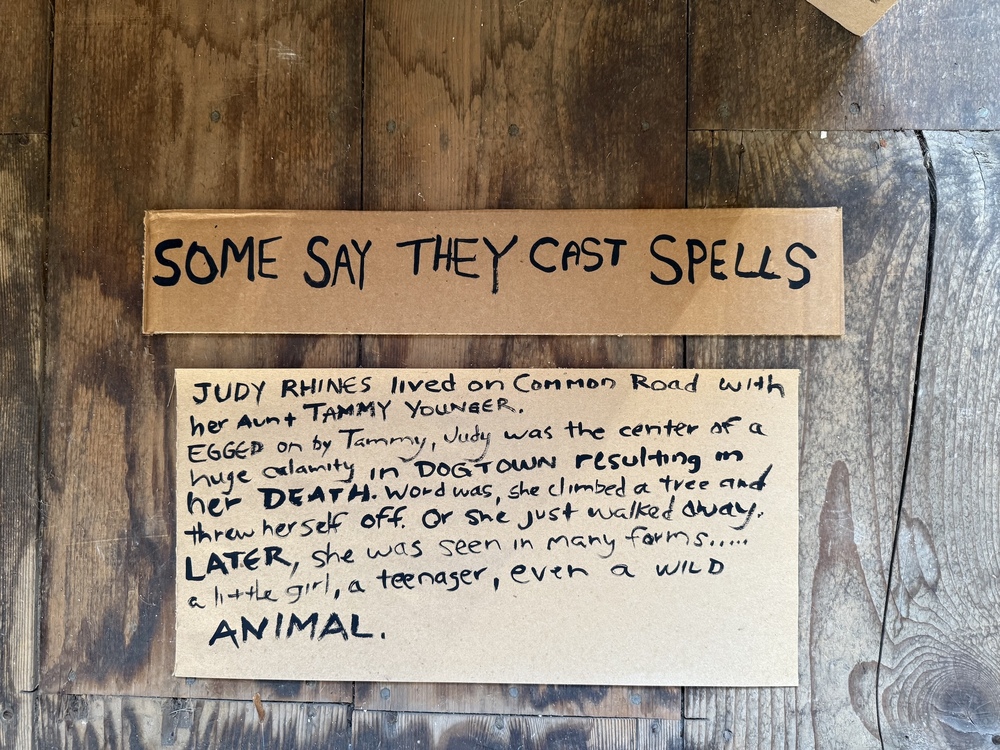 SOME SAY THEY CAST SPELLS
JUDY RHINES lived on Common Road with
her Aunt TAMMY YOUNGER.
EGGED on by Tammy, Judy was the center of a
huge calamity in DOGTOWN resulting in
her DEATH. Word was, she climbed a tree and
threw herself off. Or she just walked away.
LATER, she was seen in many forms.....
a little girl, a teenager, even a WILD
ANIMAL.